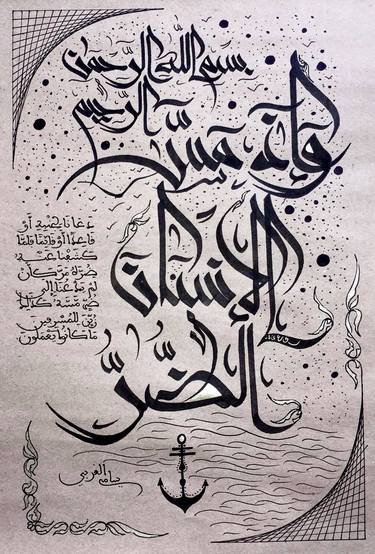 بسم الله الرحمن
الرحيم
وَإِذَا مَسَّ
الإنسان
الضُّرُّ
دعانا لجنبه أو
قاعدا أو قائما فلما
كشفنا عنه
ضره مر كأن
لم يدعنا إلى
ضر مسه كذلك
زين للمسرفين
ما كانوا يعملون